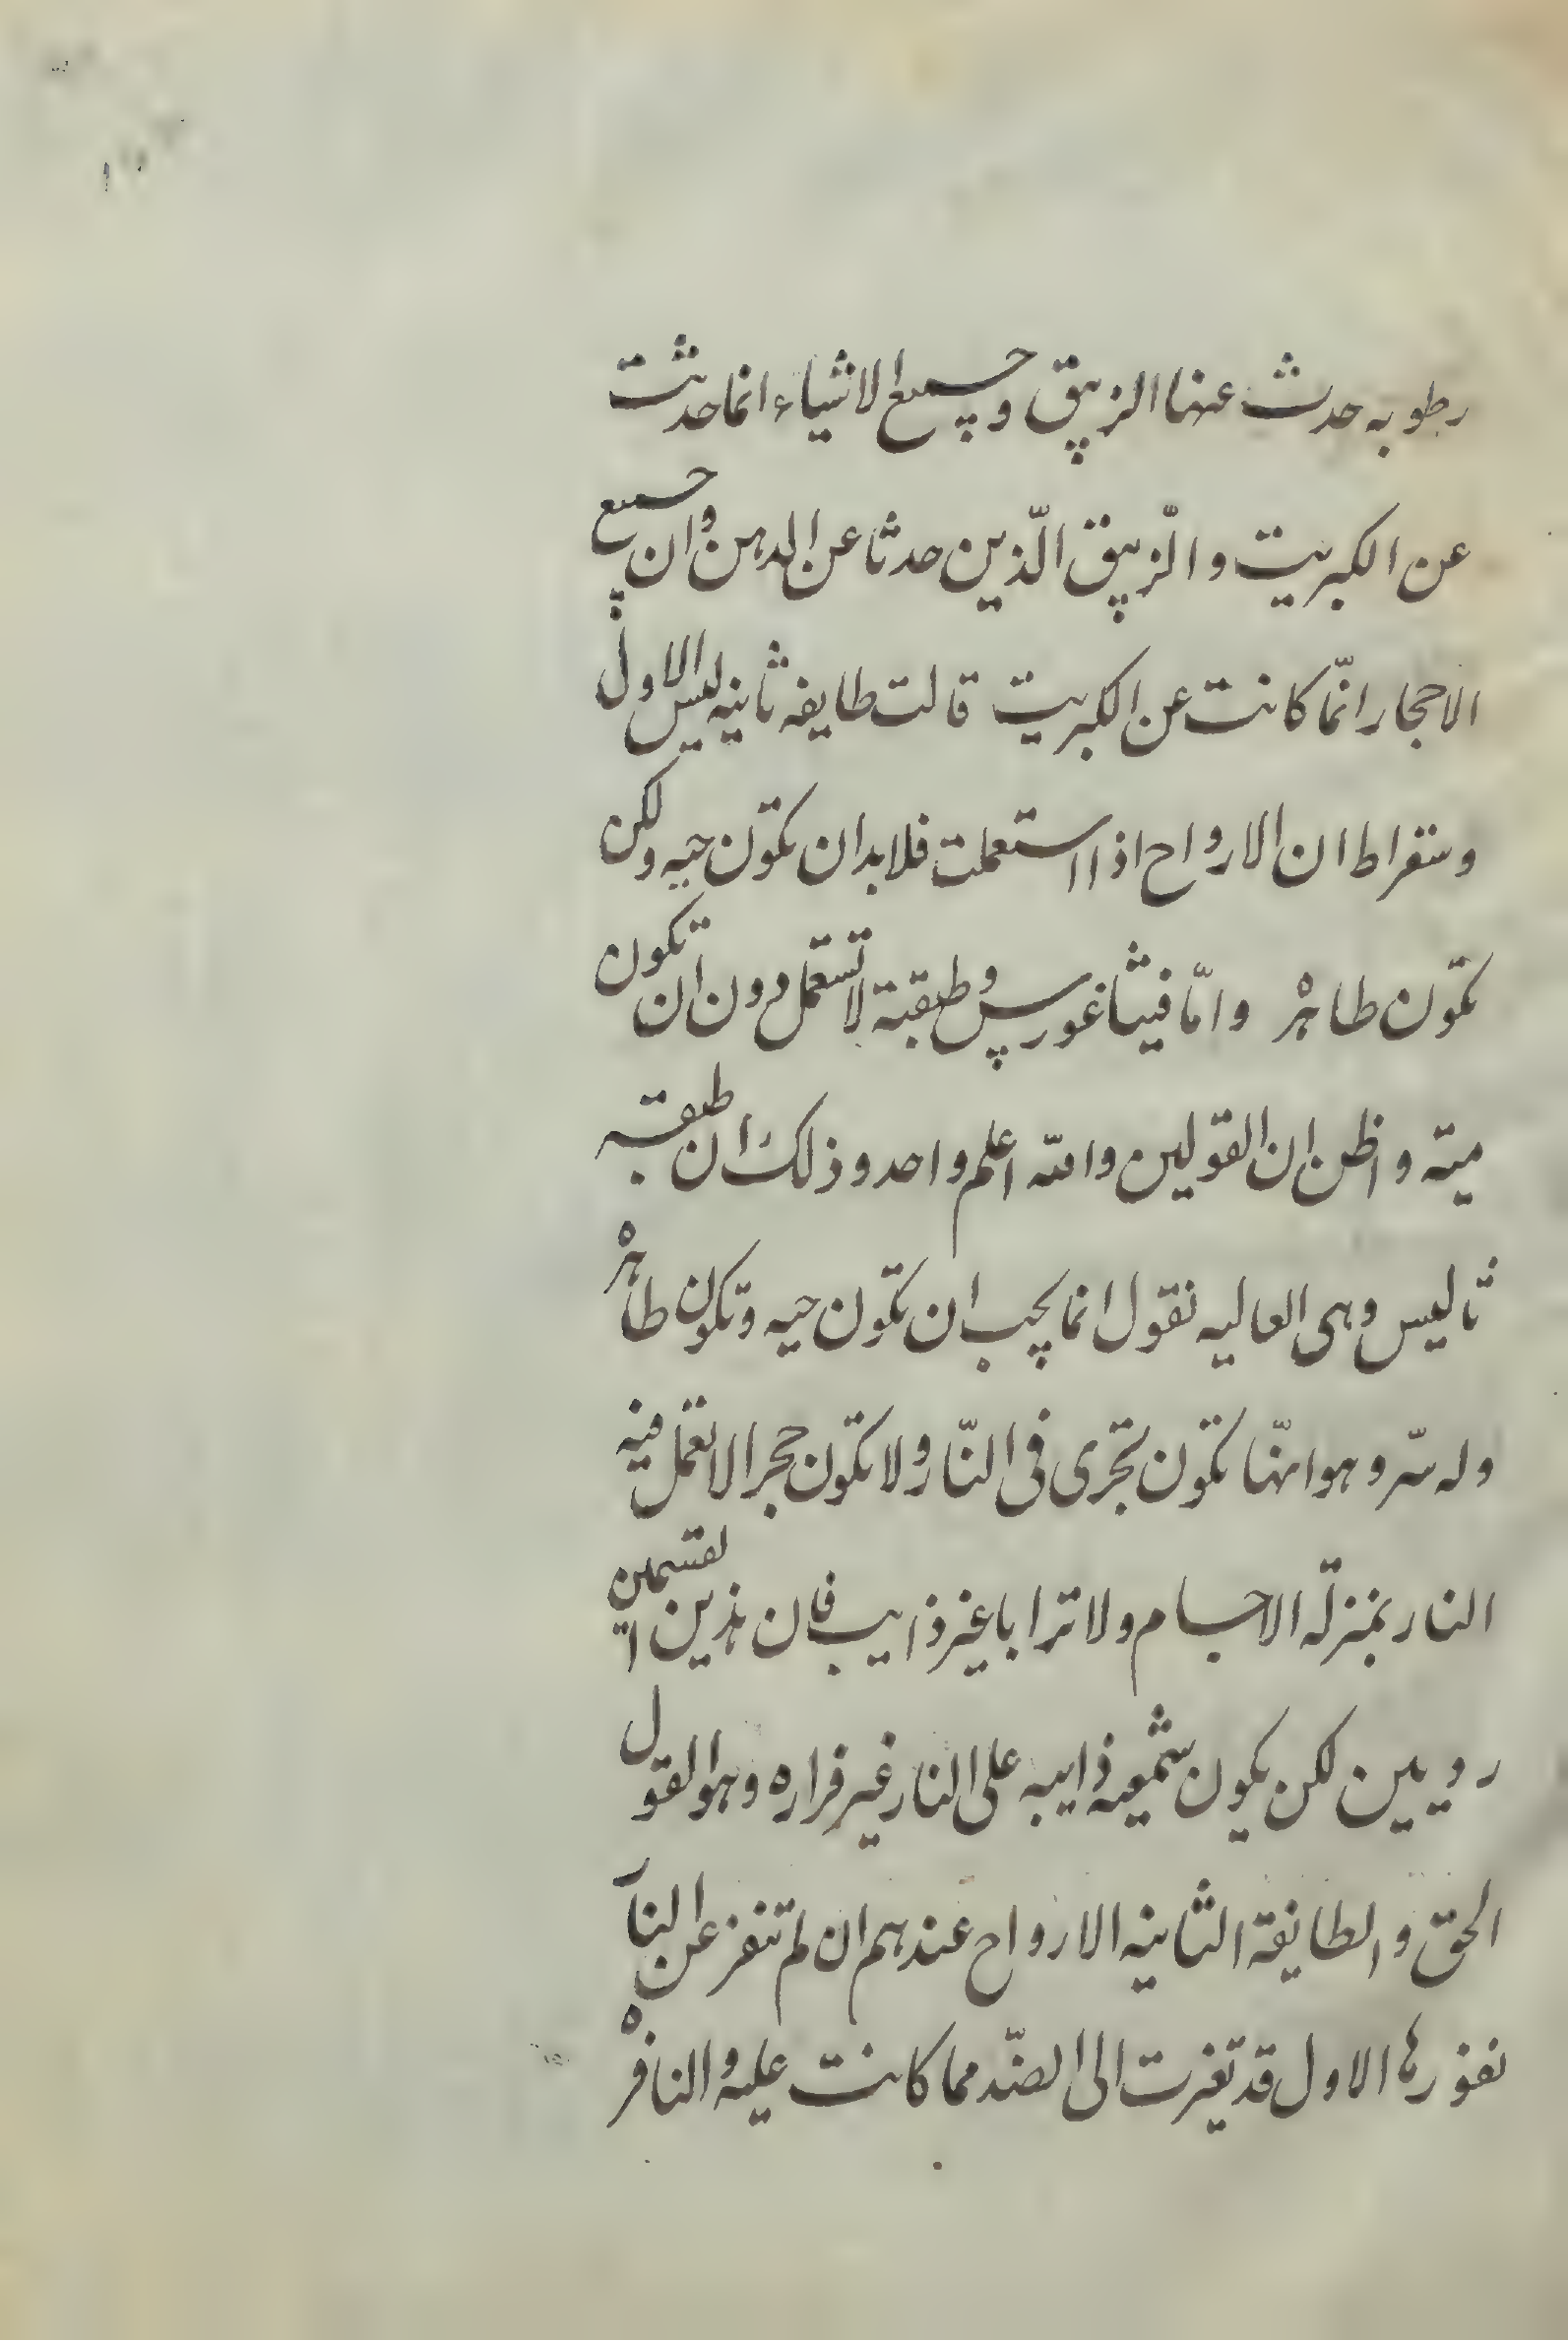 رطوبه حدث عنها الزيبق وجميع الاشياء انما حدثت
عن الكبريت والزيبق الّذين حدثا عن الدهن وان جميع
الاحجار انّما كانت عن الكبريت قالت طايفه ثانيه ليس الاول
وسقراط ان الارواح اذا استعملت فلا بد ان تكون حيه ولكن
تكون طاهره وامّا فيثاغورس وطبقته لا تستعمل دون ان تكون
ميته واظن ان القولين والله اعلم واحد وذلك ان طبقه
ثاليس وهى العاليه نقول انما يجب ان تكون حيه وتكون طاهره
وله سّر وهو انهّا تكون تجرى فى النّار ولا تكون حجرا لا تعمل فيه
النار بمنزلّه الاجسام ولا ترابا غير ذايب فان هذين القسمين
رديين لكن يكون شمعيه ذايبه على النار غير فراره وهو القول
الحق والطايفة الثانيه الارواح عندهم ان لم تنفر عن النار
نفورها الاول قد تغيرت الى الضّد مما كانت عليه والنافره